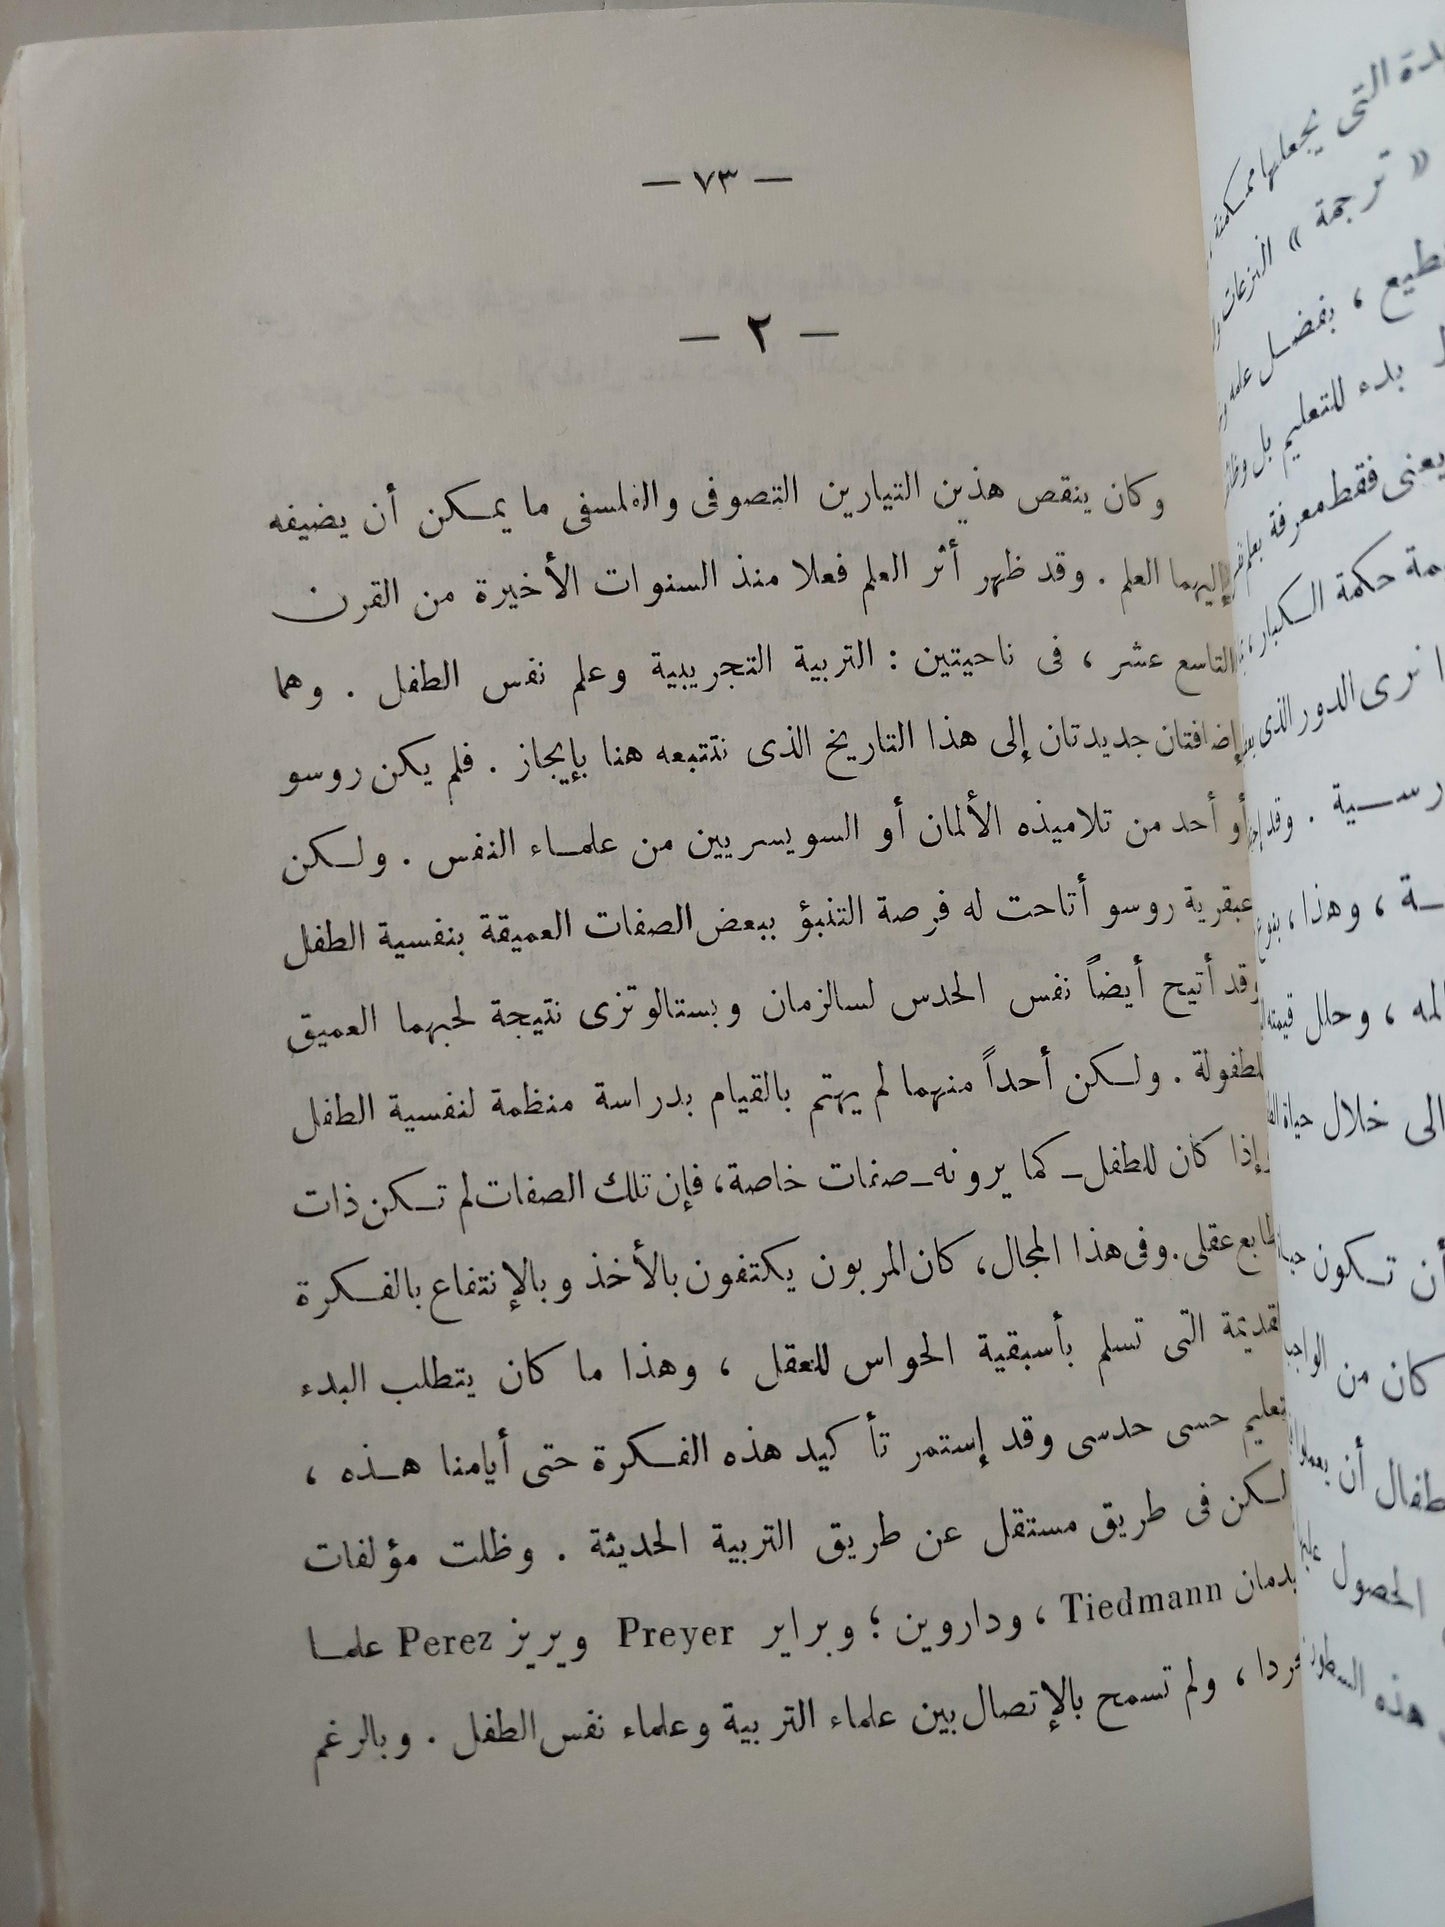 — ٧٣ —
— ٢ —
وكان ينقص هذين التيارين التصوفى والفلسفى ما يمكن أن يضيفه
إليهما العلم . وقد ظهر أثر العلم فعلا منذ السنوات الأخيرة من القرن
التاسع عشر ، فى ناحيتين : التربية التجريبية وعلم نفس الطفل . وهما
إضافتان جديدتان إلى هذا التاريخ الذى نتتبعه هنا بإيجاز . فلم يكن روسو
أو أحد من تلاميذه الألمان أو السويسريين من علماء النفس . ولكن
عبقرية روسو أتاحت له فرصة التنبؤ ببعض الصفات العميقة بنفسية الطفل
وقد أتيح أيضاً نفس الحدس لسالزمان وبستالوتزى نتيجة لحبهما العميق
للطفولة . ولكن أحداً منهما لم يهتم بالقيام بدراسة منظمة لنفسية الطفل
وإذا كان للطفل ـ كما يرونه ـ صفات خاصة ، فإن تلك الصفات لم تكن ذات
طابع عقلى . وفى هذا المجال ، كان المربون يكتفون بالأخذ وبالإنتفاع بالفكرة
القديمة التى تسلم بأسبقية الحواس للعقل ، وهذا ما كان يتطلب البدء
بتعليم حسى حدسى وقد إستمر تأكيد هذه الفكرة حتى أيامنا هذه ،
لكن فى طريق مستقل عن طريق التربية الحديثة . وظلت مؤلفات
Tiedmann ، وداروين ؛ وبراير Preyer وبريز Perez علما
، ولم تسمح بالإتصال بين علماء التربية وعلماء نفس الطفل . وبالرغم
التى نجعلها ممكنة
« ترجمة » النزعات
، بفضل علمه
بدء للتعليم بل
يعنى فقط معرفة بعلم
حكمة الكبار ،
نرى الدور الذى
. وقد
، وهذا ،
، وحلل قيمته
خلال حياة
أن تكون
كان من
أن
الحصول
هذه